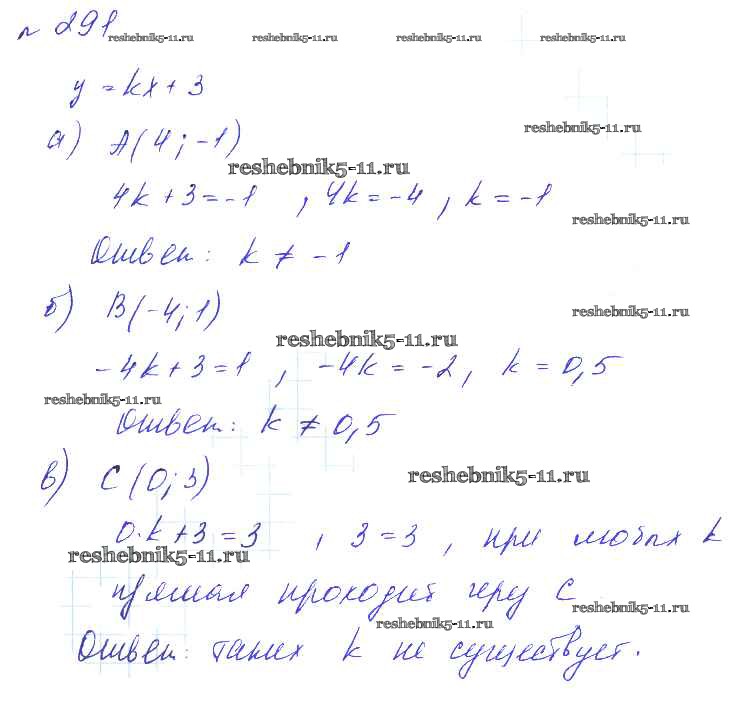 № 291
reshebnik5-11.ru reshebnik5-11.ru reshebnik5-11.ru reshebnik5-11.ru
y = kx + 3
reshebnik5-11.ru
а) A(4; -1)
reshebnik5-11.ru
4k + 3 = -1 , 4k = -4 , k = -1
reshebnik5-11.ru
Ответ: k ≠ -1
б) B(-4; 1)
reshebnik5-11.ru
reshebnik5-11.ru
-4k + 3 = 1 , -4k = -2, k = 0,5
reshebnik5-11.ru
Ответ: k ≠ 0,5
в) C(0; 3)
reshebnik5-11.ru
0·k + 3 = 3 , 3 = 3 , при любых k
reshebnik5-11.ru
прямая проходит через C
reshebnik5-11.ru
reshebnik5-11.ru
Ответ: таких k не существует.